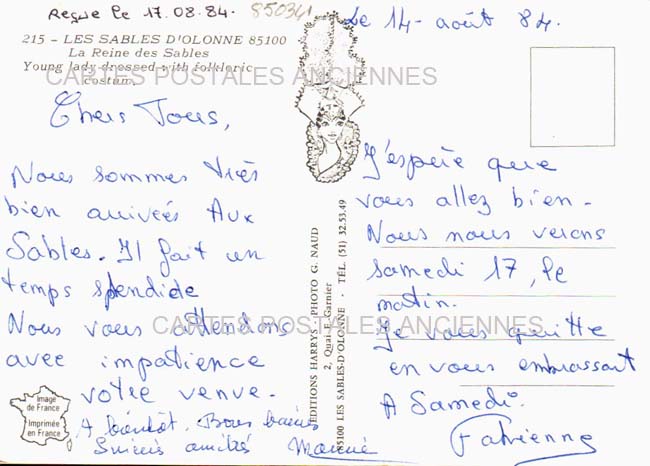 Reçue le 17.08.84.
85034
Le 14 août 84.
215 - LES SABLES D'OLONNE 85100
La Reine des Sables
Young lady dressed with folkloric
costum.
CARTES POSTALES ANCIENNES
Chers Tous,
Nous sommes très
bien arrivées Aux
Sables. Il fait un
temps splendide
Nous vous attendons
avec impatience
votre venue.
A bientôt. Bons baisers
amitiés
Image
de France
Imprimée
en France
ÉDITIONS HARRYS - PHOTO G. NAUD
2, Quai E.-Garnier
85100 LES SABLES-D'OLONNE - TÉL. (51) 32.53.49
J'espère que
vous allez bien -
Nous nous verons
samedi 17, le
matin.
CARTES POSTALES ANCIENNES
Je vous quitte
en vous embrassant
A Samedi.
Fabienne